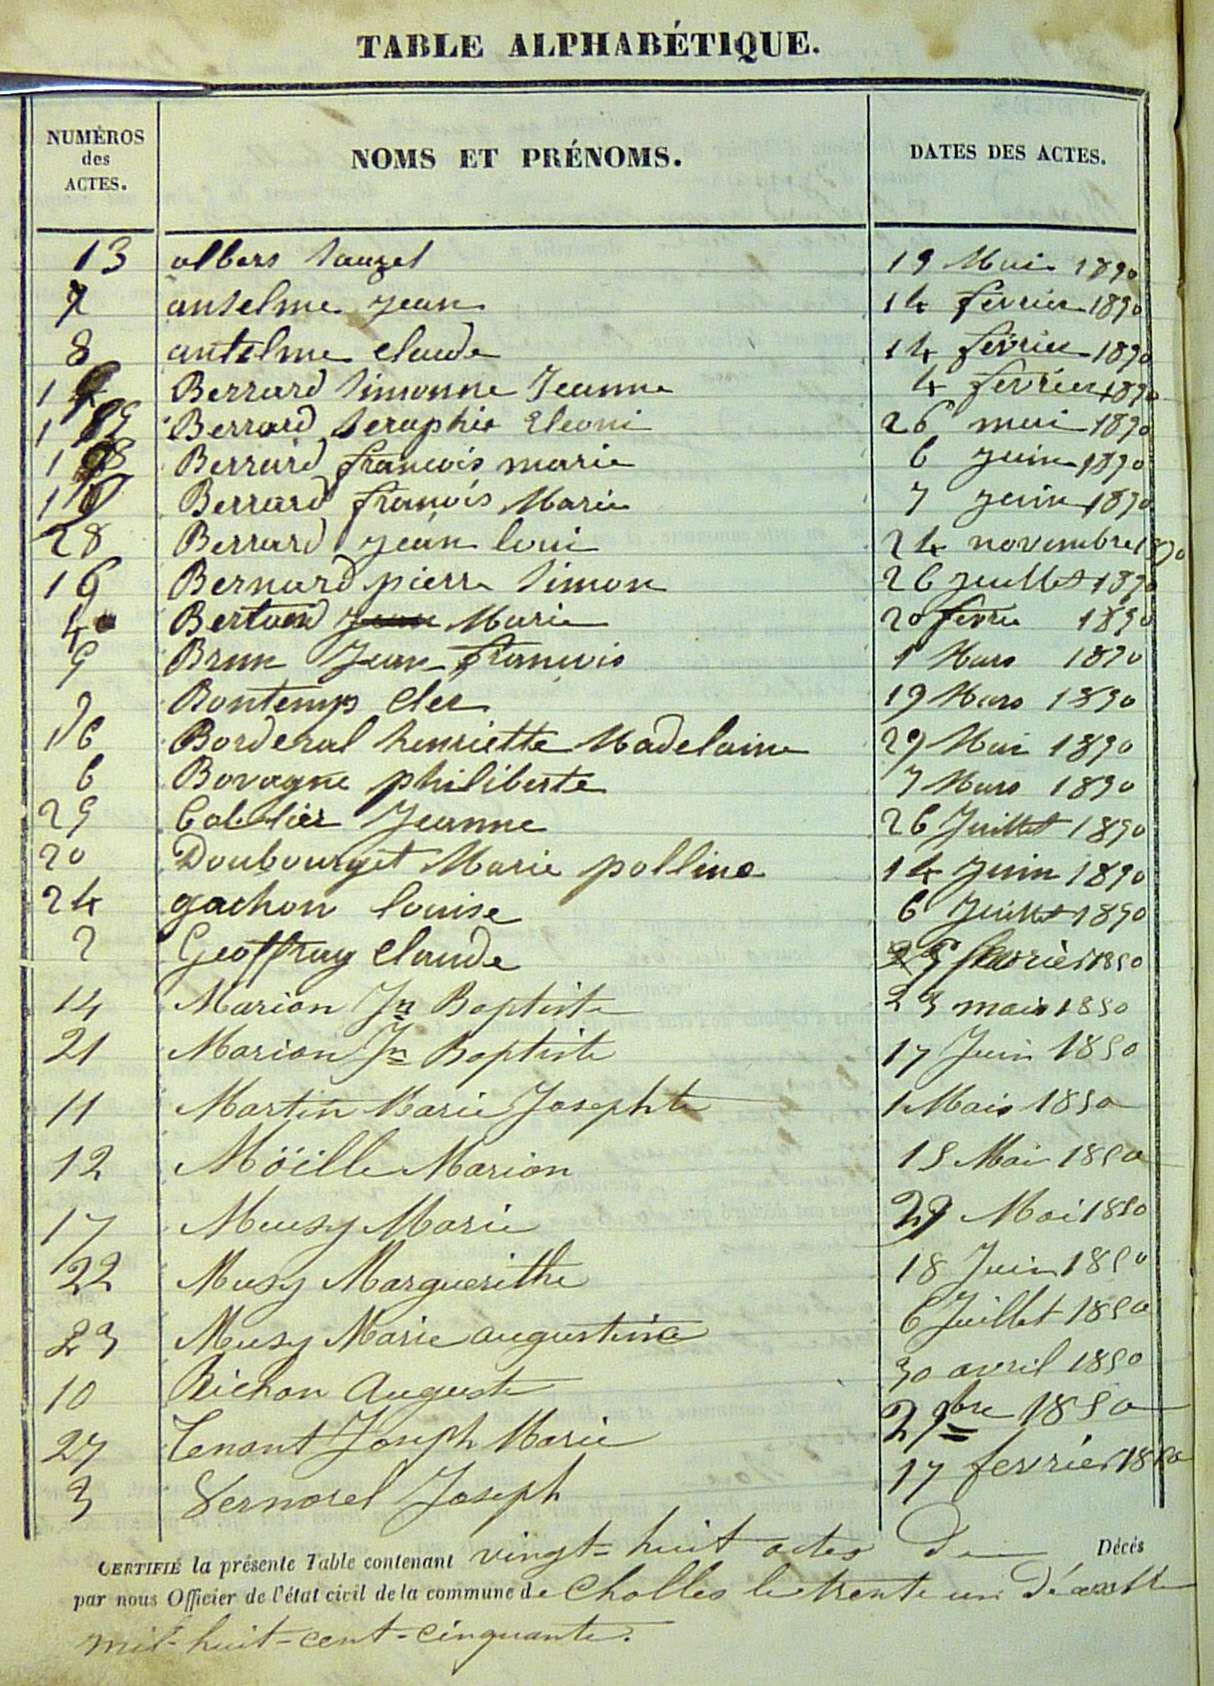 TABLE ALPHABÉTIQUE.
NUMÉROS des ACTES. NOMS ET PRÉNOMS. DATES DES ACTES.
13 albers 19 Mai 1850
7 anselme jean 14 fevrier 1850
8 antelme claude 14 février 1850
1 Berrard Simonne Jeanne 4 fevrier 1850
Berrard Seraphie Eleoni 26 mai 1850
18 Berrard francois marie 6 juin 1850
19 Berrard francois Marie 7 juin 1850
28 Berrard jean loui 24 novembre 1850
Bernard pierre Simon 26 juillet 1850
4 Marie 20 fevrie 1850
9 Brun Jean francois 1 Mars 1850
Bontemp cler 19 Mars 1850
16 Borderal henriette Madelaine 29 Mai 1850
6 Bovagne philiberte 7 Mars 1850
25 Jeanne 26 Juillet 1850
20 Doubourget Marie polline 14 Juin 1850
24 gachon louise 6 Juillet 1850
2 Geoffray Claude 5 fevrier 1850
14 Marion Jn Baptiste 23 mais 1850
21 Marion Jn Baptiste 17 Juin 1850
11 Martin Marie Josephte 1 Mais 1850
12 Möille Marion 15 Mai 1850
17 Meusy Marie 29 Mai 1850
22 Musy Marguerithe 18 Juin 1850
23 Meusy Marie augustine 6 Juillet 1850
10 Auguste 30 avril 1850
27 Tenant Joseph Marie 2 9bre 1850
3 Vernorel Joseph 17 fevrier 1850
CERTIFIÉ la présente Table contenant vingt-huit actes de Décés
par nous Officier de l'état civil de la commune de Cholles le trente un
mil-huit-cent-cinquante.